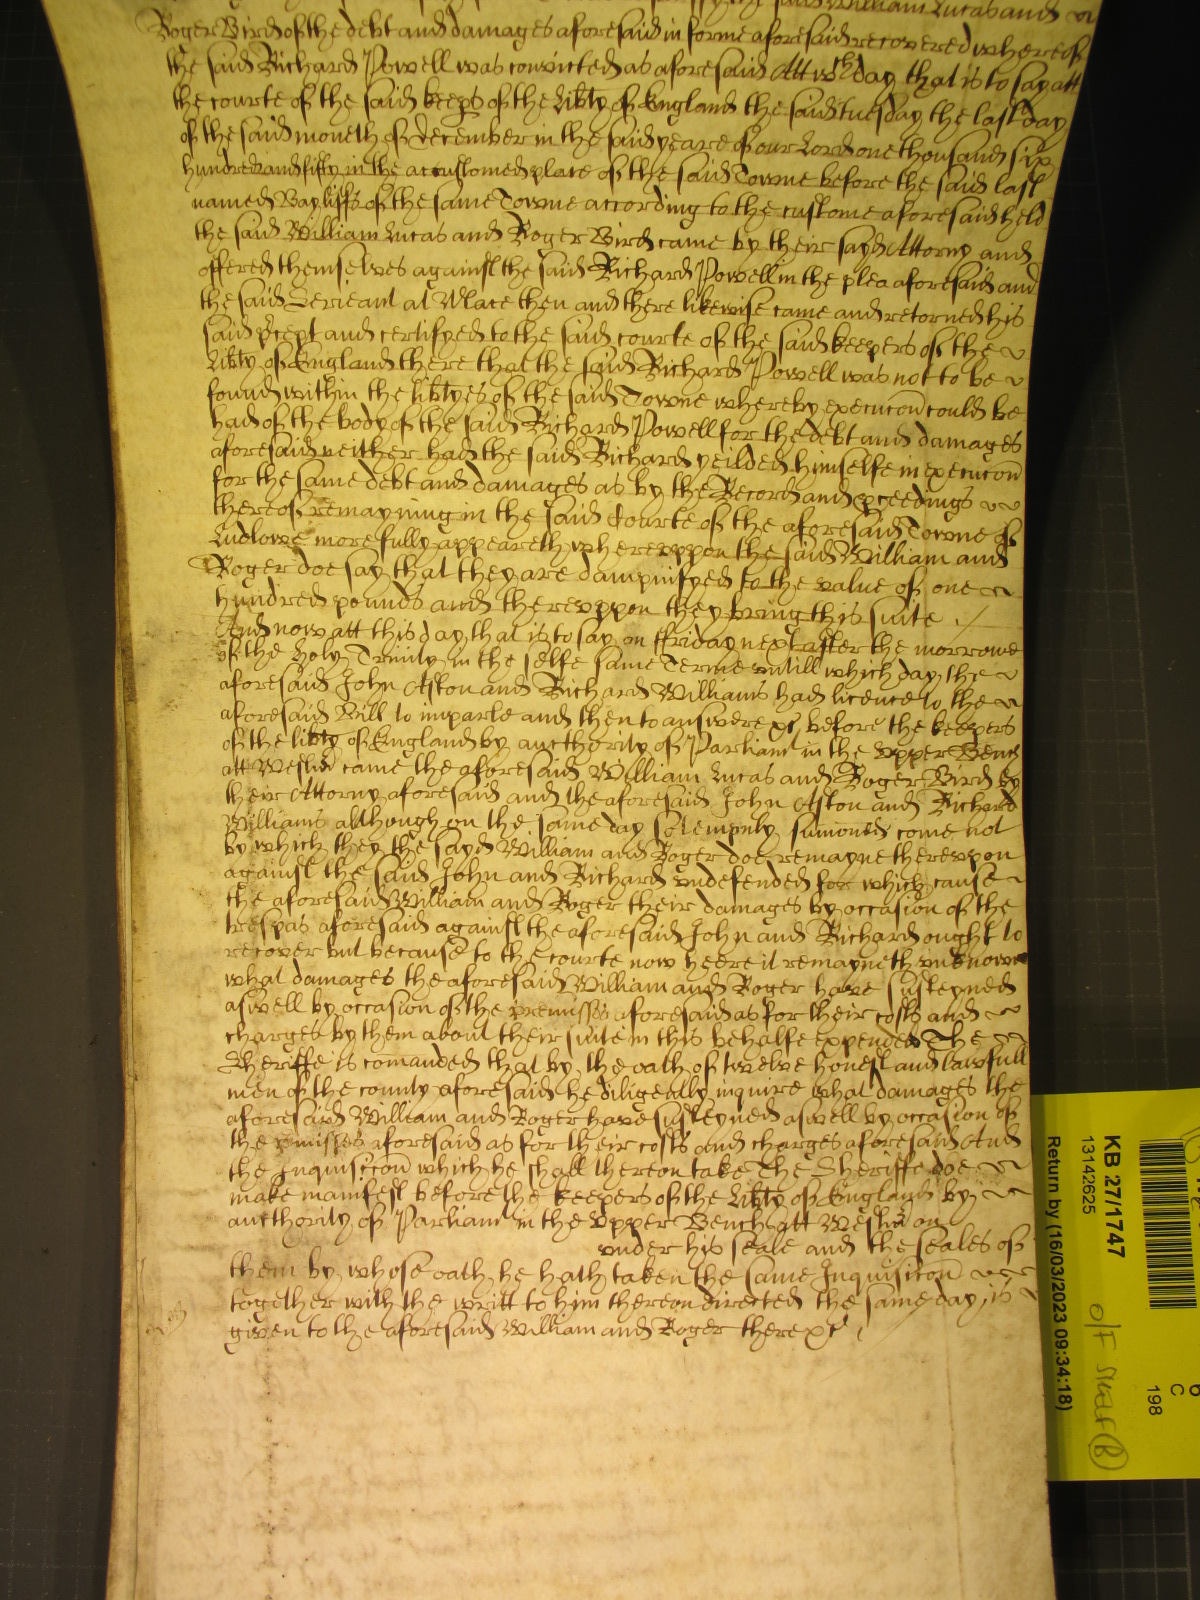 said William Lucas and
Roger Bird of the debt and damages aforesaid in forme aforesaid recovered whereof
the said Richard Powell was convicted as aforesaid Att wch day that is to say att
the courte of the said keeps of the Libty of England the said tuesday the last day
of the said moneth of December in the said yeare of our Lord one thousand six
hundred and fifty in the accustomed place of the said Towne before the said last
named Bayliffs of the same Towne according to the custome aforesaid held
the said William Lucas and Roger Bird came by their sayd Attorny and
offered themselves against the said Richard Powell in the plea aforesaid and
the said Serieant at Mace then and there likewise came and retorned his
said pcept and certifyed to the said courte of the said keepers of the
Libty of England there that the said Richard Powell was not to be
found within the libtyes of the said Towne whereby execucon could be
had of the body of the said Richard Powell for the debt and damages
aforesaid neither had the said Richard yeilded himselfe in execucon
for the same debt and damages as by the Record and pceedings
thereof remayning in the said Courte of the aforesaid Towne of
Ludlowe more fully appeareth whereuppon the said William and
Roger doe say that they are dampnifyed to the value of one
hundred pounds and thereuppon they bring this suite
And now att this day that is to say on ffriday next after the morrowe
of the holy Trinity in the selfe same Terme untill which day the
aforesaid John Aston and Richard Williams had licence to the
aforesaid Bill to imparle and then to answere &c before the keepers
of the libty of England by aucthority of Parliamt in the upper Bench
att Westm came the aforesaid William Lucas and Roger Bird by
their Attorny aforesaid and the aforesaid John Aston and Richard
Williams although on the same day solempnly sumoned come not
by which they the sayd William and Roger doe remayne thereupon
against the said John and Richard undefended for which cause
the aforesaid William and Roger their damages by occasion of the
trespas aforesaid against the aforesaid John and Richard ought to
recover but because to the courte now heere it remayneth unknowne
what damages the aforesaid William and Roger have susteyned
aswell by occasion of the premisses aforesaid as for their costs and
charges by them about their suite in this behalfe expended The
Sheriffe is comanded that by the oath of twelve honest and lawfull
men of the county aforesaid he diligently inquire what damages the
aforesaid William and Roger have susteyned aswell by occasion of
the pmisses aforesaid as for their costs and charges aforesaid And
the Inquisicon which he shall thereon take The Sheriffe doe
make manifest before the keepers of the Libty of England by
aucthority of Parliamt in the Upper Bench att Westm on
under his seale and the seales of
them by whose oath he hath taken the same Inquisicon
together with the writt to him thereon directed the same day is
given to the aforesaid William and Roger there &c
KB 27/1747
13142625
Return by (16/03/2023 09:34:18)
O/F
C
198